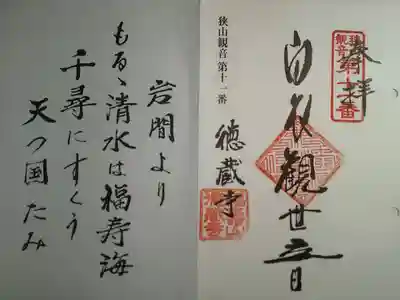 奉拝
白衣觀世音
狭山観音第十一番
徳蔵寺
岩間より
もるゝ清水は福寿海
千尋にすくう
天つ国たみ